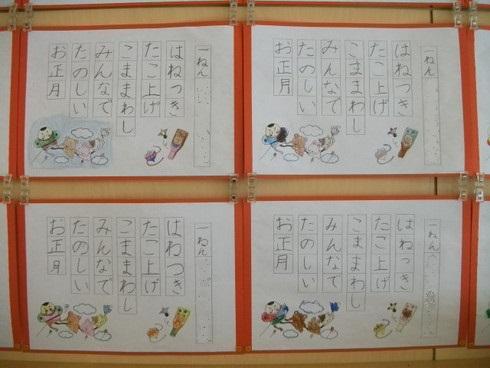 一ねん
はねつき
たこ上げ
こままわし
みんなで
たのしい
お正月
一ねん
はねつき
たこ上げ
こままわし
みんなで
たのしい
お正月
一ねん
はねつき
たこ上げ
こままわし
みんなで
たのしい
お正月
一ねん
はねつき
たこ上げ
こままわし
みんなで
たのしい
お正月